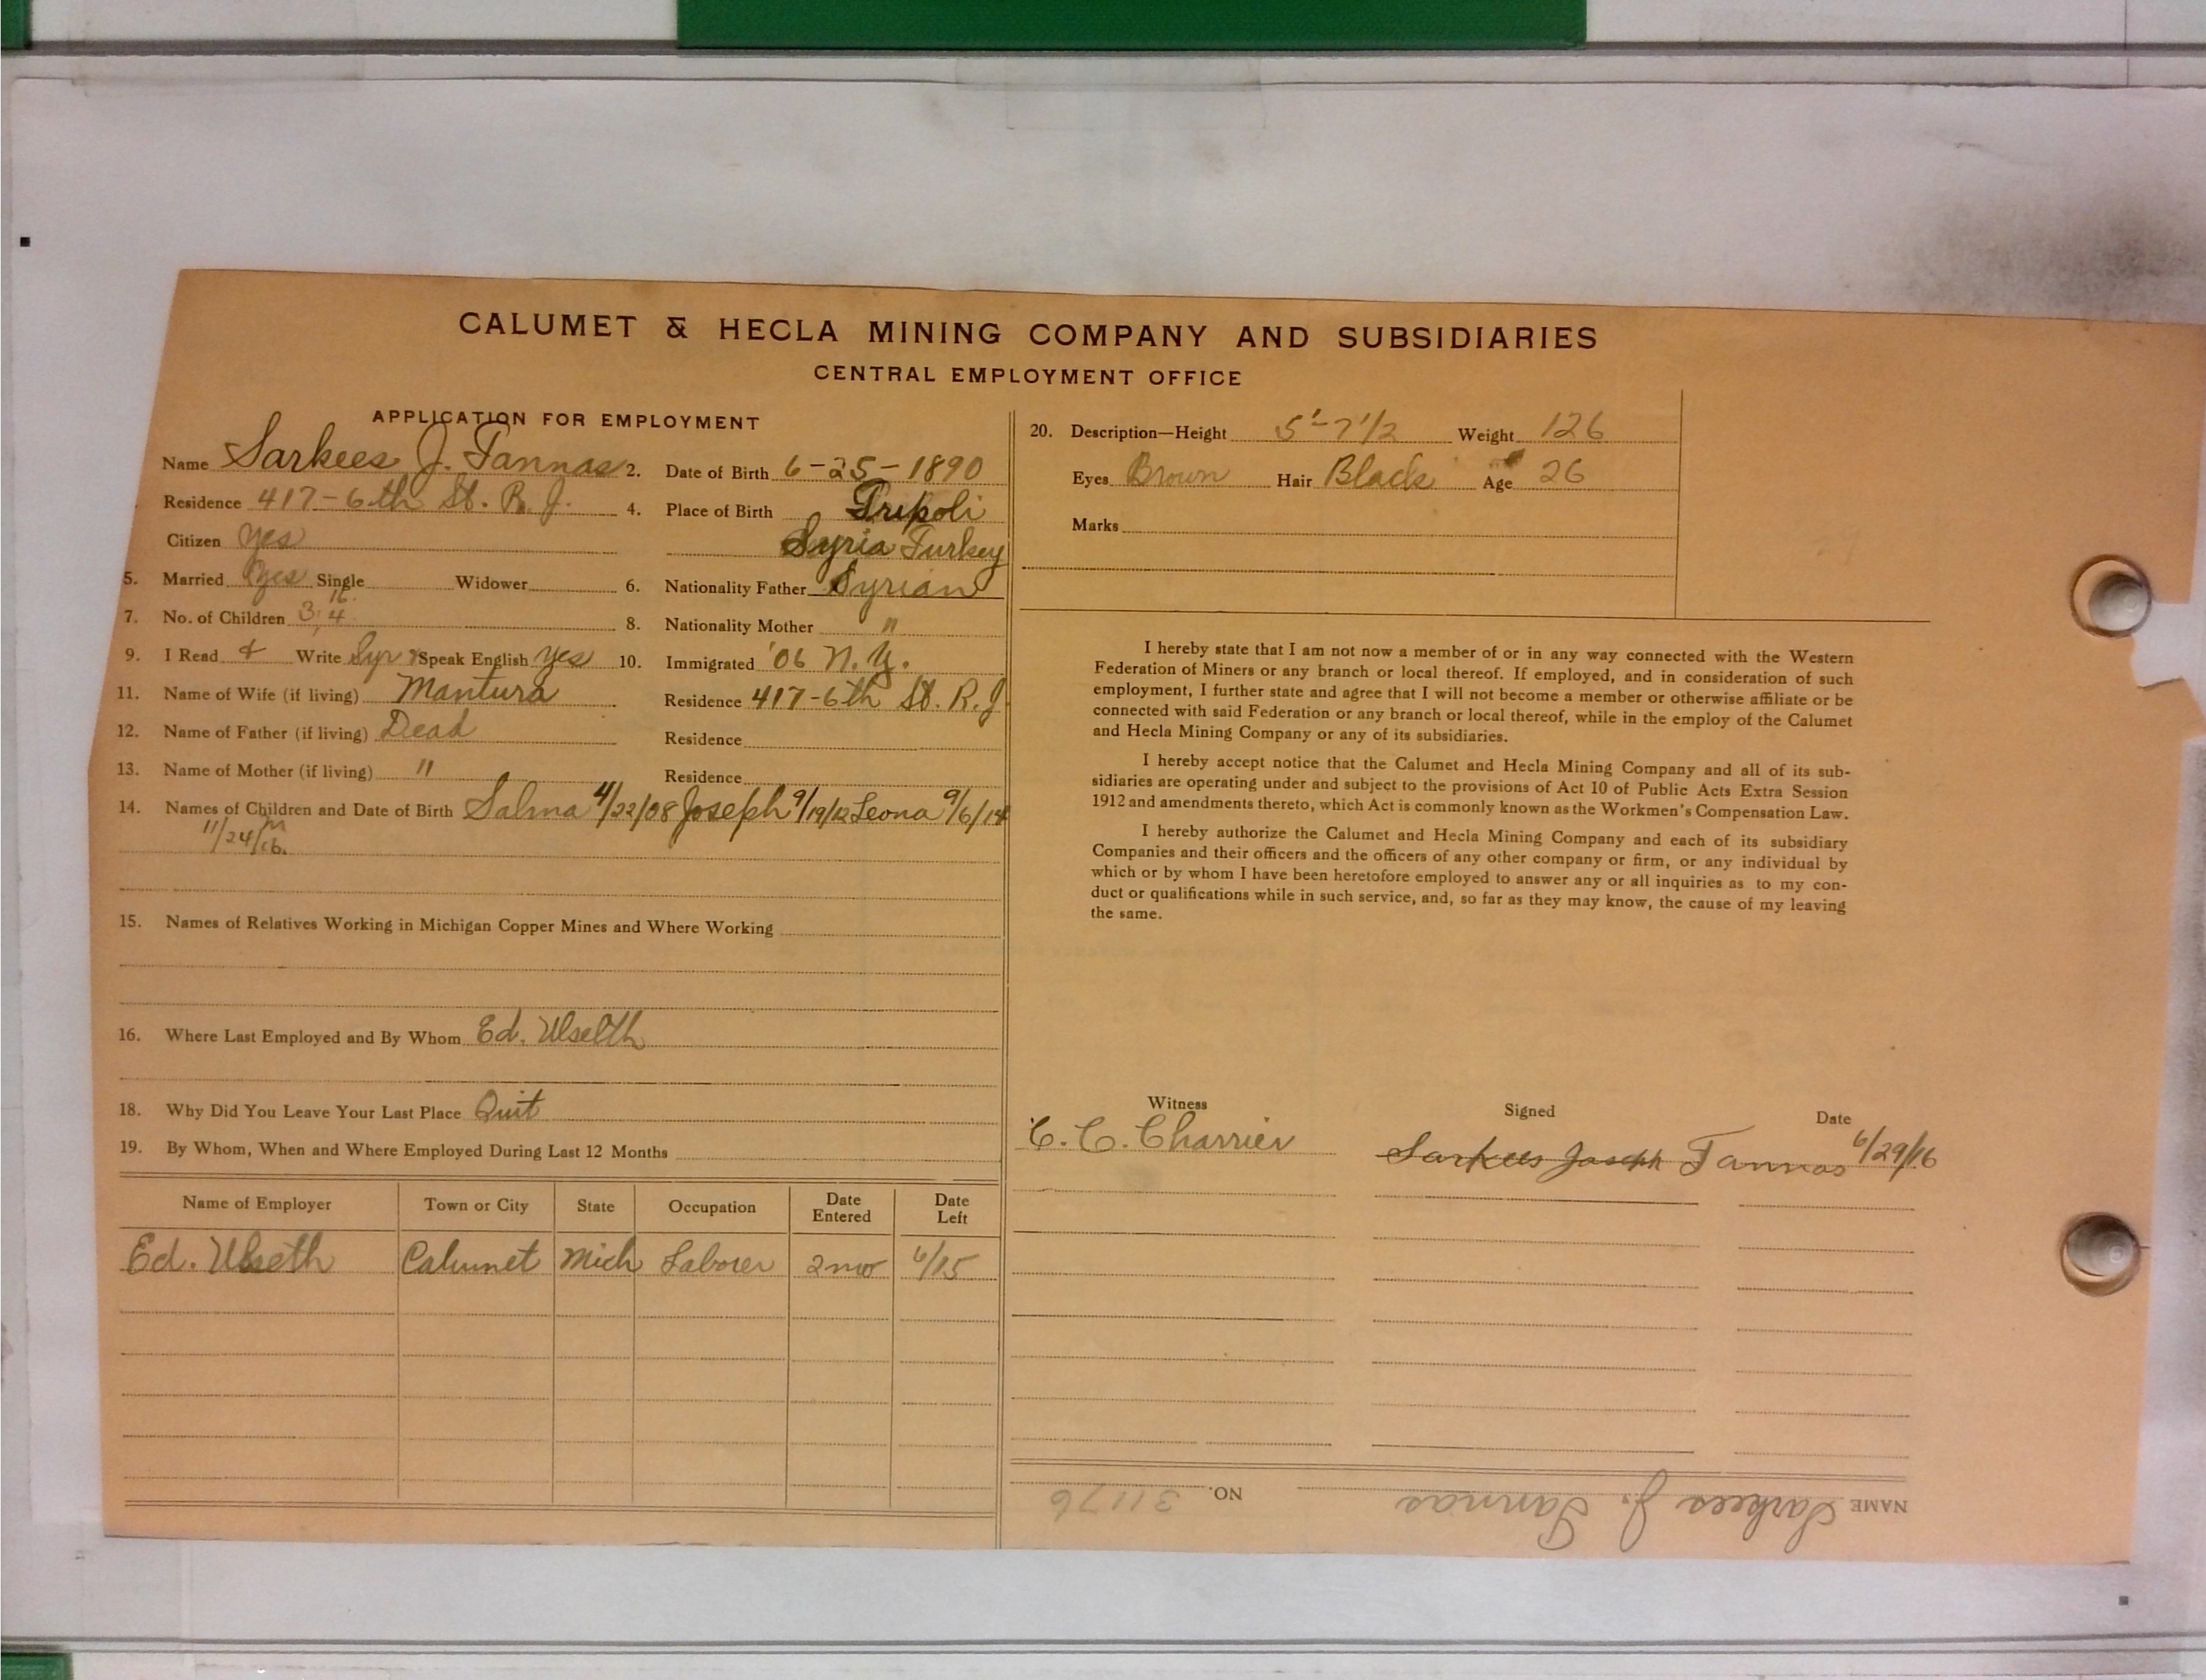 CALUMET & HECLA MINING COMPANY AND SUBSIDIARIES
CENTRAL EMPLOYMENT OFFICE
APPLICATION FOR EMPLOYMENT
Name Sarkees J. Tannas 2. Date of Birth 6-25-1890
Residence 417-6th St. R. J. 4. Place of Birth Tripoli
Citizen Yes Syria Turkey
5. Married Yes Single Widower 6. Nationality Father Syrian
7. No. of Children 3, 4 16. 8. Nationality Mother "
9. I Read & Write Syr & Speak English Yes 10. Immigrated '06 N.Y.
11. Name of Wife (if living) Mantura Residence 417-6th St. R. J.
12. Name of Father (if living) Dead Residence
13. Name of Mother (if living) " Residence
14. Names of Children and Date of Birth Salma 4/22/08 Joseph 9/19/12 Leona 9/6/14
m 11/24/16.
15. Names of Relatives Working in Michigan Copper Mines and Where Working
16. Where Last Employed and By Whom Ed. Ulseth
18. Why Did You Leave Your Last Place Quit
19. By Whom, When and Where Employed During Last 12 Months
Name of Employer Town or City State Occupation Date Entered Date Left
Ed. Ulseth Calumet Mich Laborer 2 mo 6/15
20. Description—Height 5'-7 1/2 Weight 126
Eyes Brown Hair Black Age 26
Marks
I hereby state that I am not now a member of or in any way connected with the Western
Federation of Miners or any branch or local thereof. If employed, and in consideration of such
employment, I further state and agree that I will not become a member or otherwise affiliate or be
connected with said Federation or any branch or local thereof, while in the employ of the Calumet
and Hecla Mining Company or any of its subsidiaries.
I hereby accept notice that the Calumet and Hecla Mining Company and all of its sub-
sidiaries are operating under and subject to the provisions of Act 10 of Public Acts Extra Session
1912 and amendments thereto, which Act is commonly known as the Workmen's Compensation Law.
I hereby authorize the Calumet and Hecla Mining Company and each of its subsidiary
Companies and their officers and the officers of any other company or firm, or any individual by
which or by whom I have been heretofore employed to answer any or all inquiries as to my con-
duct or qualifications while in such service, and, so far as they may know, the cause of my leaving
the same.
Witness Signed Date
C. C. Charrier Sarkees Joseph Tannas 6/29/16
NAME Sarkees J. Tannas NO. 31176